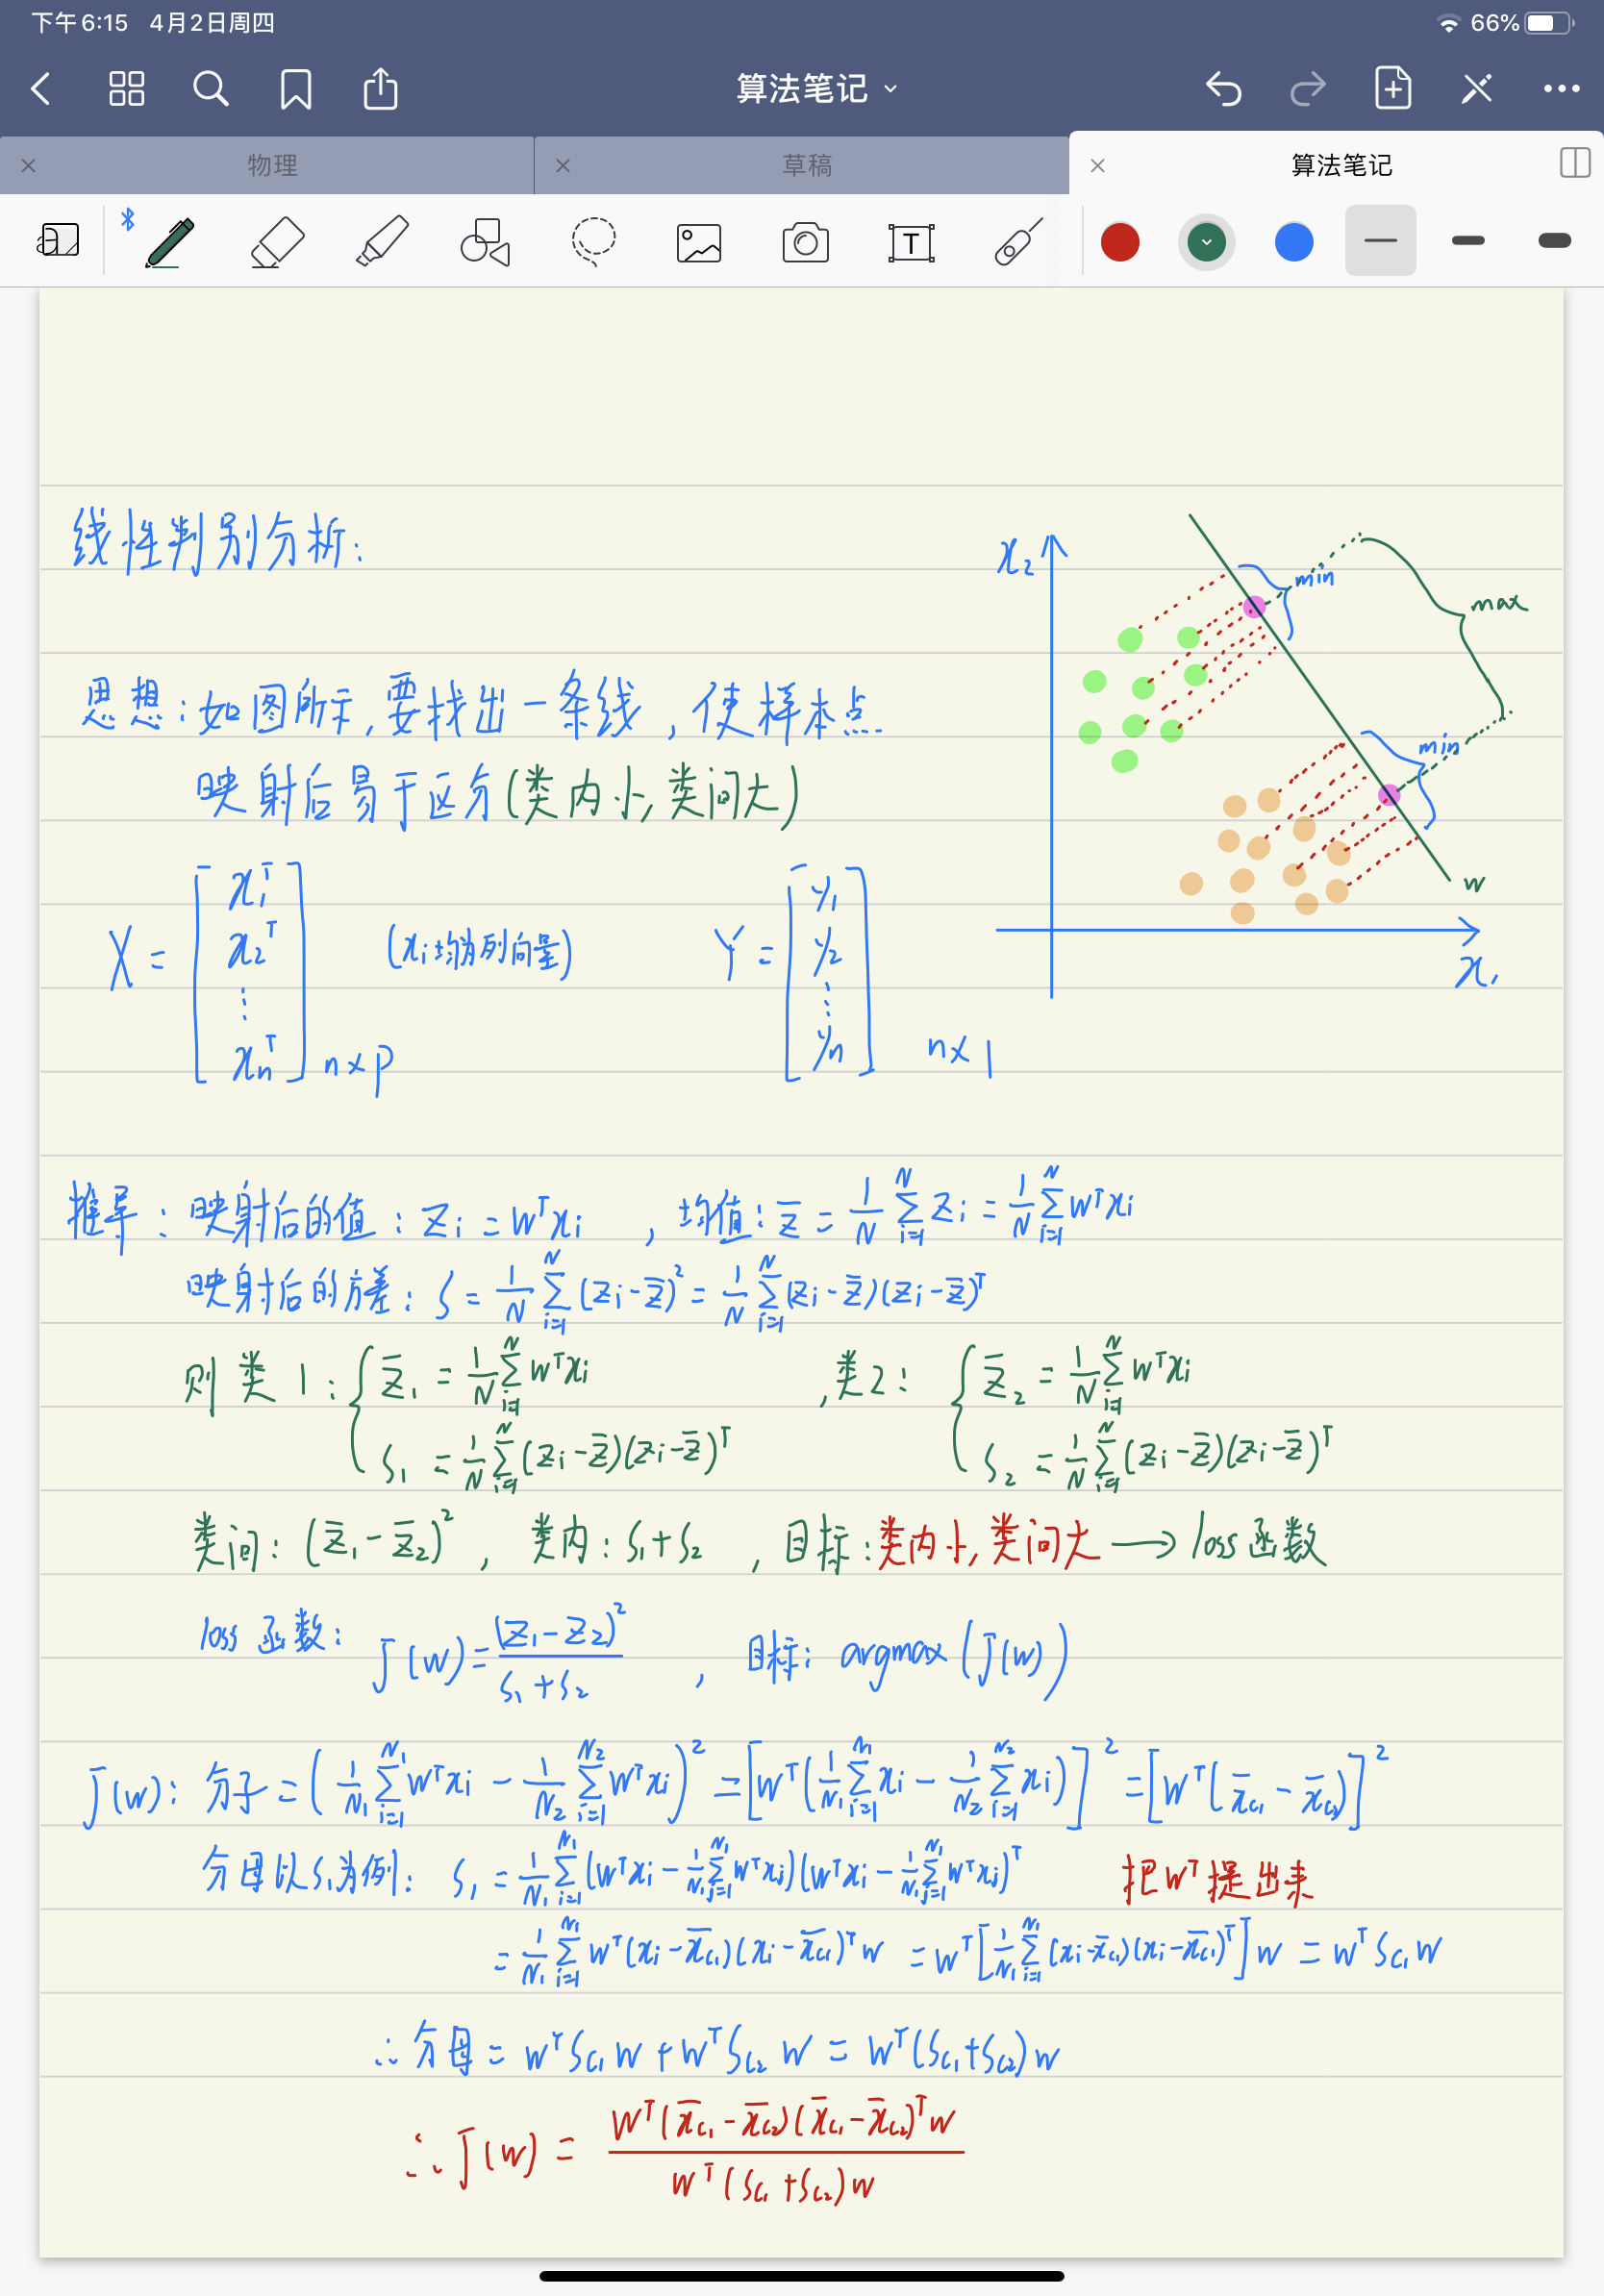 下午6:15 4月2日周四 66%
算法笔记
物理 草稿 算法笔记
线性判别分析:
思想:如图所示,要找出一条线,使样本点
映射后易于区分(类内小,类间大)
x₂ min max
min
w
x₁
X = [x₁ᵀ x₂ᵀ ⋮ xₙᵀ] n×p (xᵢ均为列向量) Y = [y₁ y₂ ⋮ yₙ] n×1
推导:映射后的值:zᵢ = wᵀxᵢ ,均值:z̄ = 1/N ∑_{i=1}^{N} zᵢ = 1/N ∑_{i=1}^{N} wᵀxᵢ
映射后的方差:S = 1/N ∑_{i=1}^{N} (zᵢ-z̄)² = 1/N ∑_{i=1}^{N} (zᵢ-z̄)(zᵢ-z̄)ᵀ
则类1:{ z̄₁ = 1/N ∑_{i=1}^{N} wᵀxᵢ ,类2:{ z̄₂ = 1/N ∑_{i=1}^{N} wᵀxᵢ
S₁ = 1/N ∑_{i=1}^{N} (zᵢ-z̄)(zᵢ-z̄)ᵀ S₂ = 1/N ∑_{i=1}^{N} (zᵢ-z̄)(zᵢ-z̄)ᵀ
类间:(z̄₁-z̄₂)² , 类内:S₁+S₂ ,目标:类内小,类间大 → loss函数
loss函数: J(w) = (z₁-z₂)² / (S₁+S₂) , 目标: argmax(J(w))
J(w): 分子 = (1/N₁ ∑_{i=1}^{N₁} wᵀxᵢ - 1/N₂ ∑_{i=1}^{N₂} wᵀxᵢ)² = [wᵀ(1/N₁ ∑_{i=1}^{N₁} xᵢ - 1/N₂ ∑_{i=1}^{N₂} xᵢ)]² = [wᵀ(x̄_{c₁} - x̄_{c₂})]²
分母以S₁为例: S₁ = 1/N₁ ∑_{i=1}^{N₁} (wᵀxᵢ - 1/N₁ ∑_{j=1}^{N₁} wᵀxⱼ)(wᵀxᵢ - 1/N₁ ∑_{j=1}^{N₁} wᵀxⱼ)ᵀ 把wᵀ提出来
= 1/N₁ ∑_{i=1}^{N₁} wᵀ(xᵢ-x̄_{c₁})(xᵢ-x̄_{c₁})ᵀw = wᵀ[1/N₁ ∑_{i=1}^{N₁} (xᵢ-x̄_{c₁})(xᵢ-x̄_{c₁})ᵀ]w = wᵀS_{c₁}w
∴分母 = wᵀS_{c₁}w + wᵀS_{c₂}w = wᵀ(S_{c₁}+S_{c₂})w
∴J(w) = wᵀ(x̄_{c₁}-x̄_{c₂})(x̄_{c₁}-x̄_{c₂})ᵀw / wᵀ(S_{c₁}+S_{c₂})w